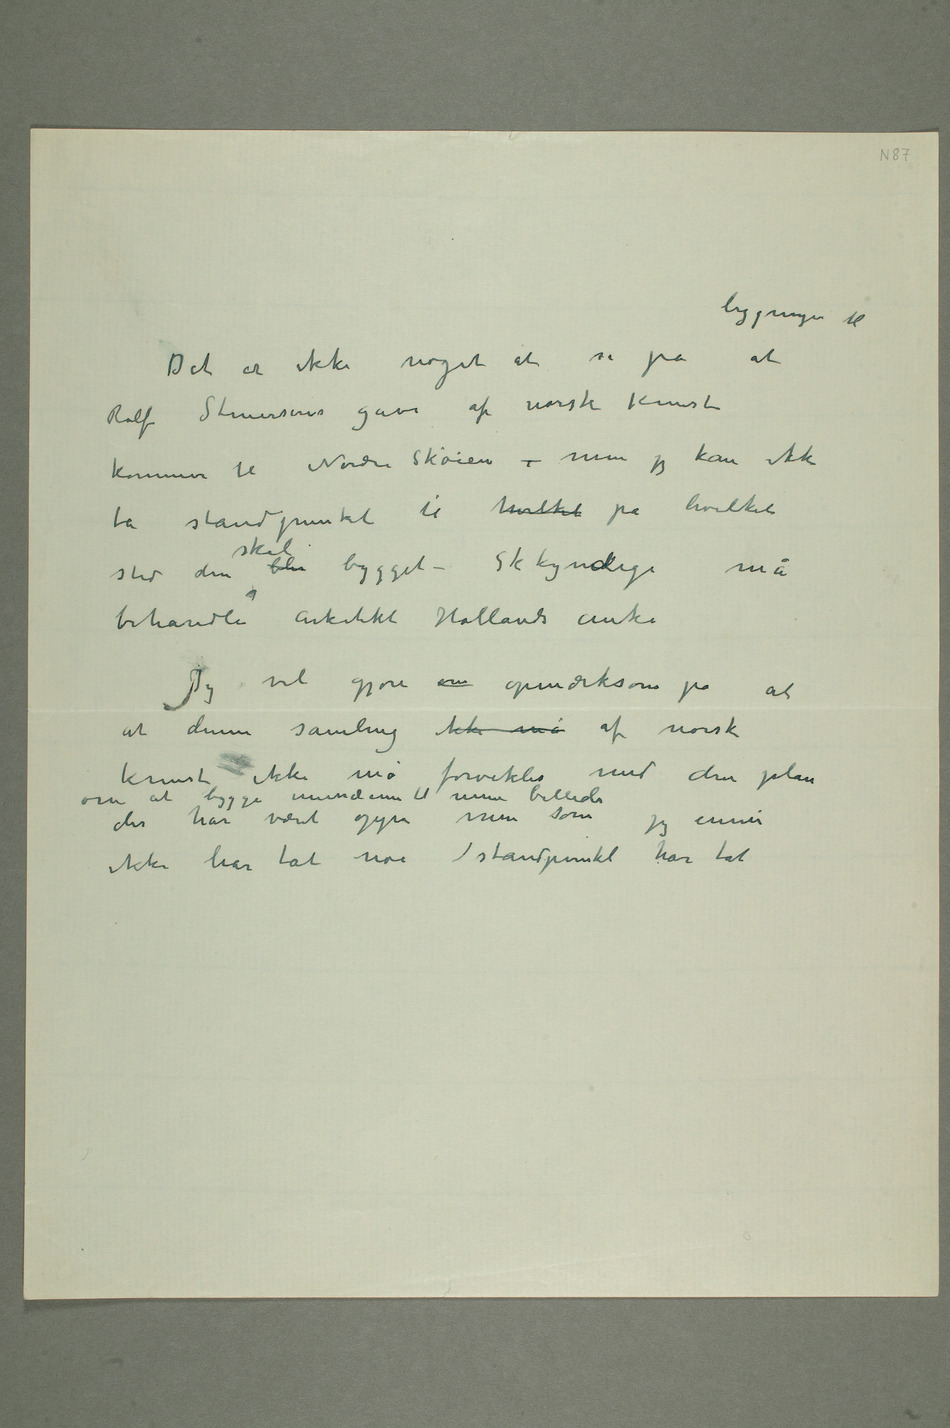 N87
bygningen til
Det er ikke noget at si på at
Rolf Stenersens gave af norsk Kunst
kommer til Nordre Skøien – men jg kan ikke
ta standpunktet til hvilket på hvilket
skal
sted den blir bygget – Skkyndige må
behandle arkitekt Hollands anke
Jg vil gjøre om opmærksom på at
at denne samling ikke må af norsk
Kunst ikke må forvikles med den plan
om at bygge musæum til mine billeder
der har været oppe men som jg ennu
ikke har tat noe standpunkt har tat